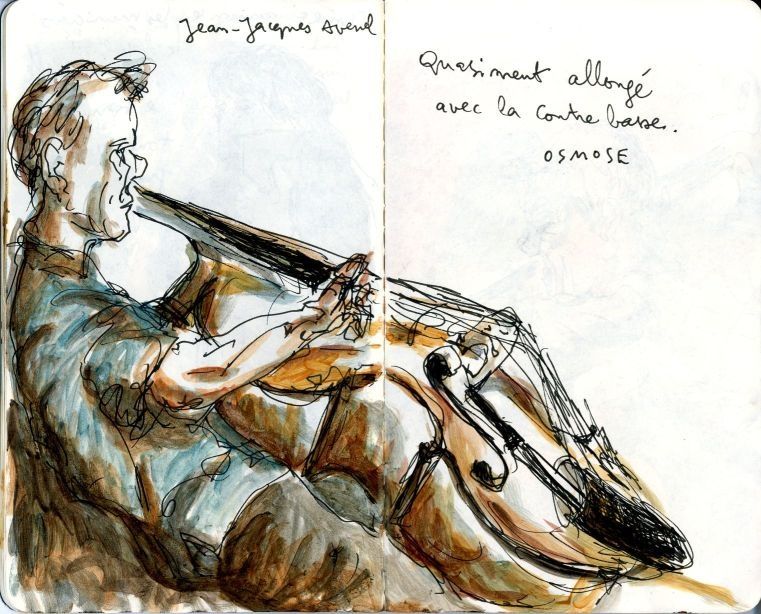 Jean-Jacques Avenel
Quasiment allongé
avec la contre basse.
OSMOSE